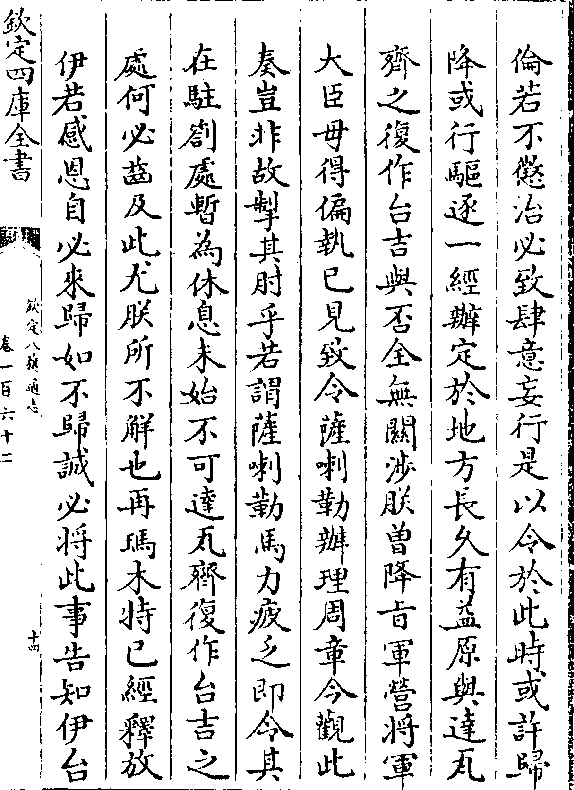 倫若不懲治必致肆意妄行是以令於此時或許歸
降或行驅逐一經辦定於地方長久有益原與達瓦
齊之復作台吉與否全無關涉朕曽降㫖軍營將軍
大臣毋得偏執已見致令薩喇勒辦理周章今觀此
奏豈非故掣其肘乎若謂薩喇勒馬力疲乏即令其
在駐劄處暫為休息未始不可達瓦齊復作台吉之
處何必齒及此尤朕所不解也再瑪木特已經釋放
伊若感恩自必來歸如不歸誠必將此事告知伊台
欽定四庫全書
欽定八旗通志
卷一百六十二
十四